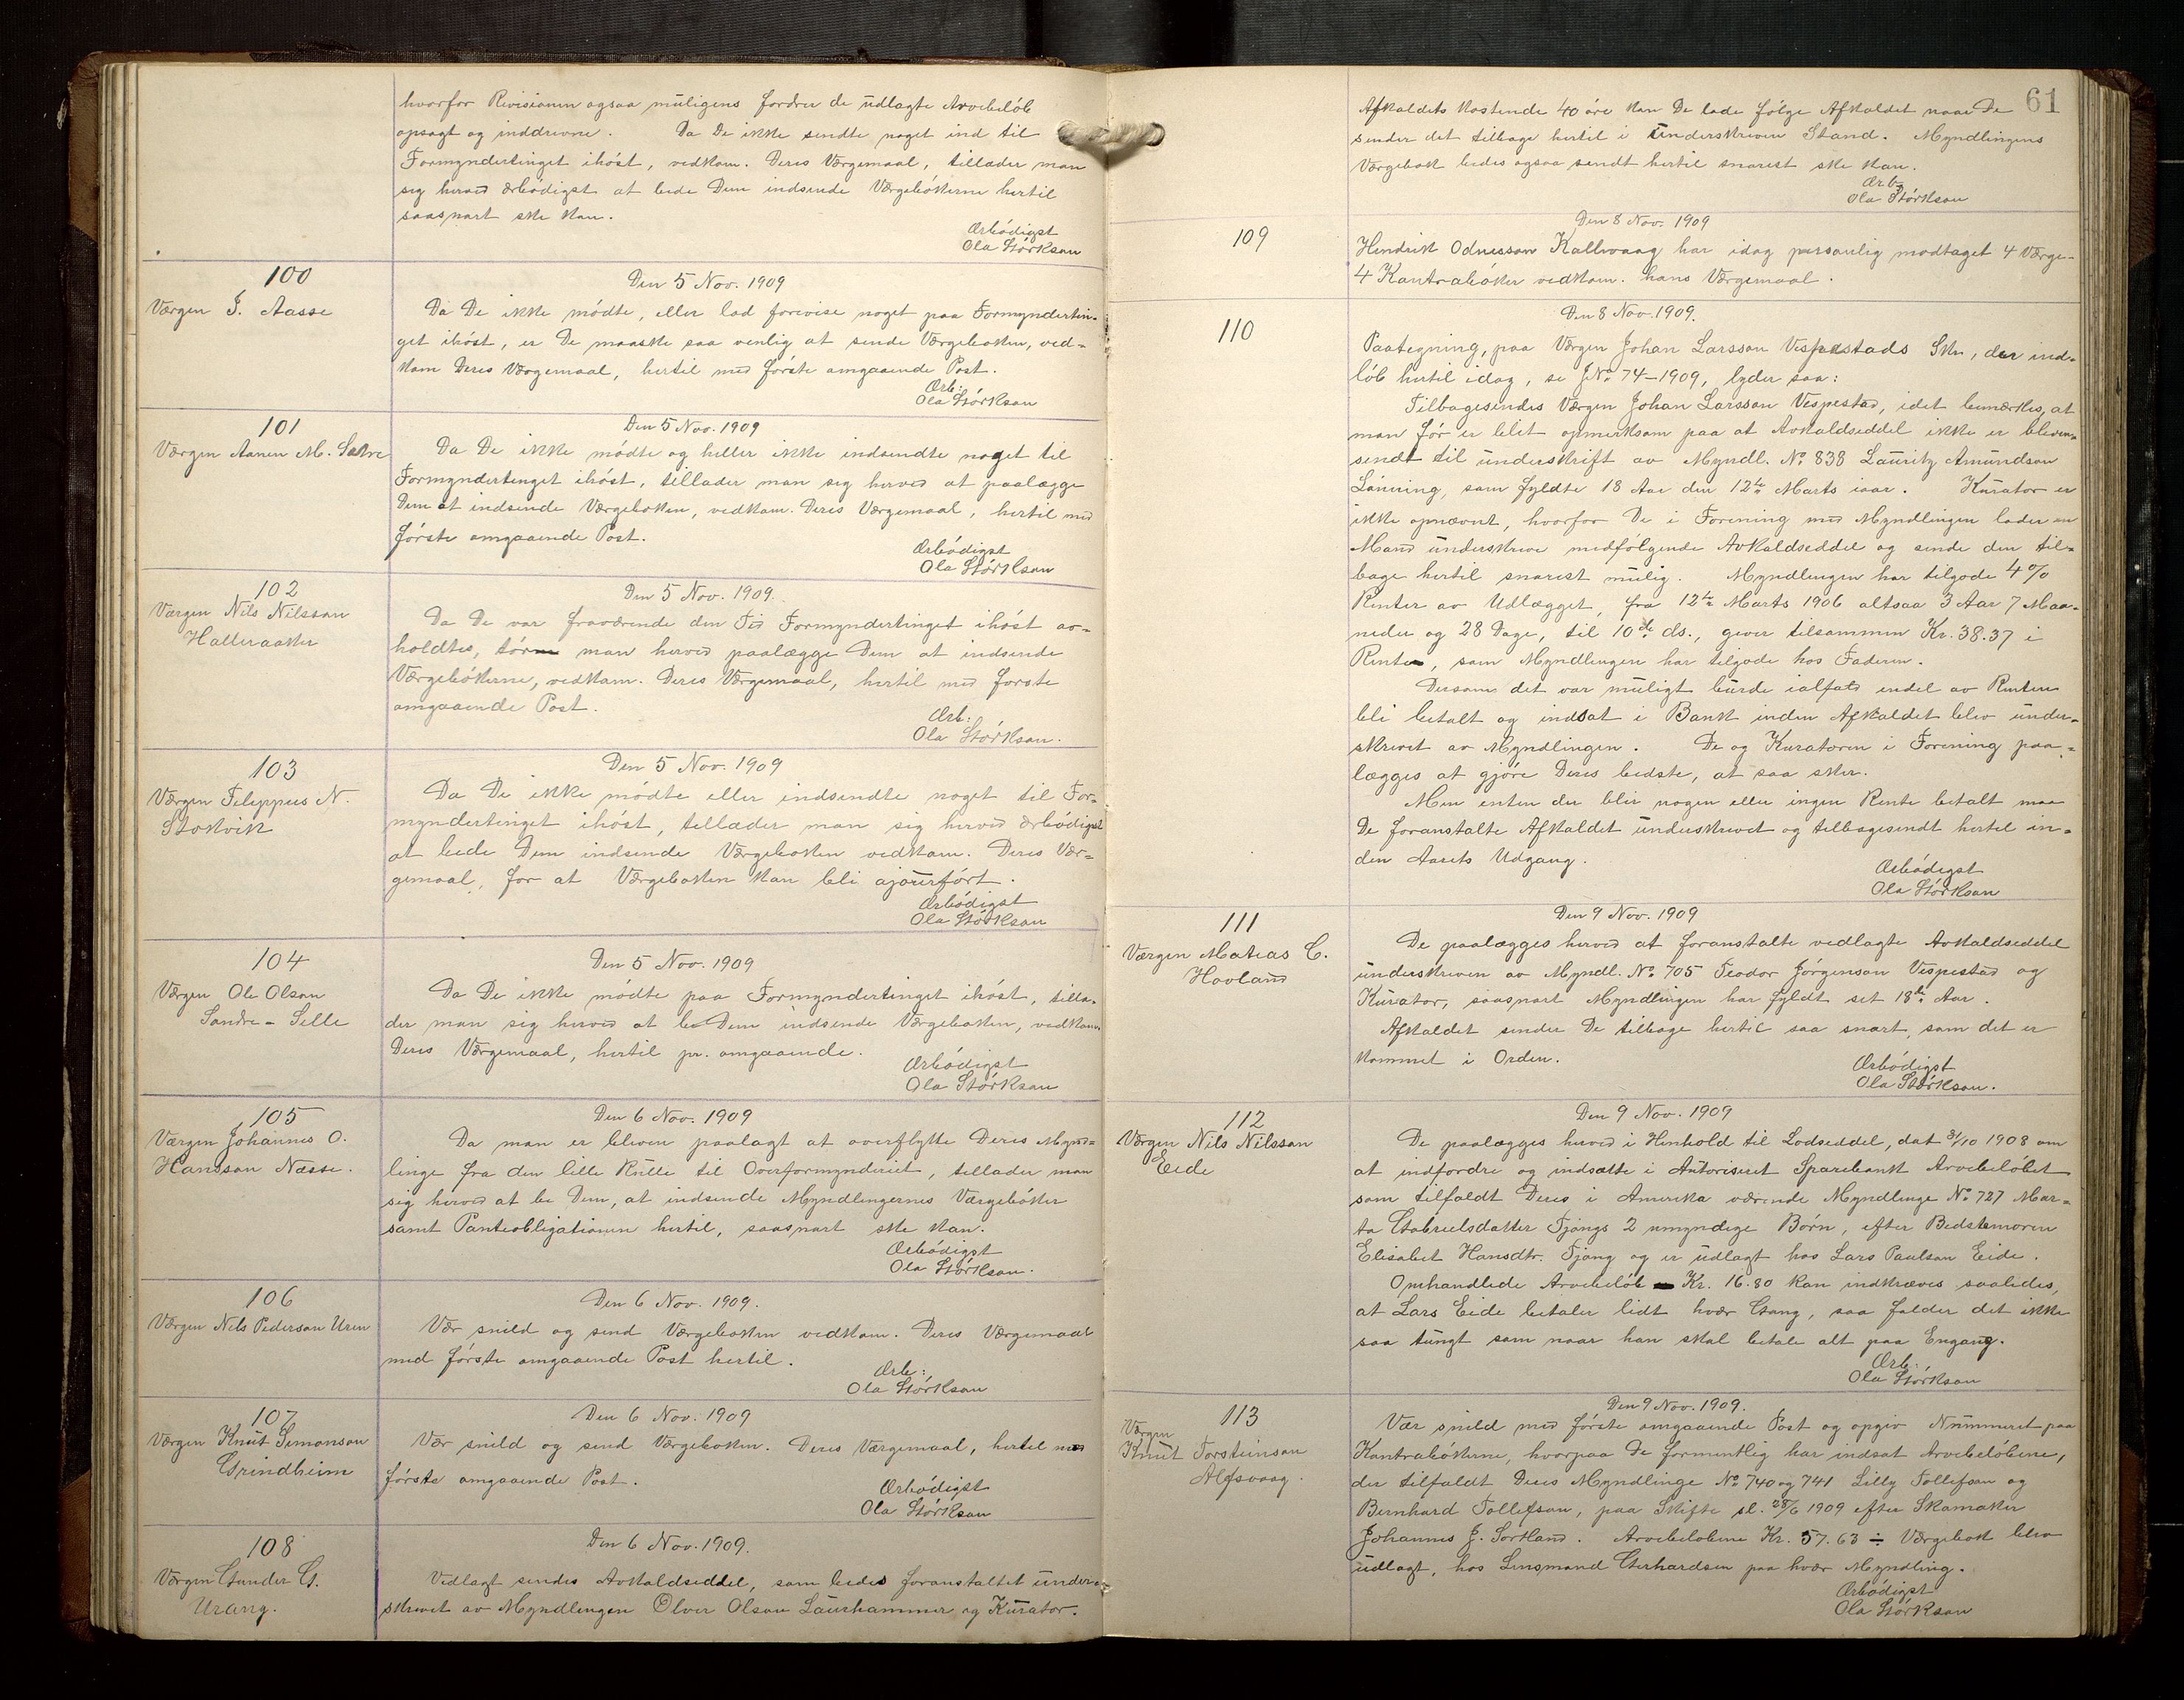 hvorfor Revisionen ogsaa muligens fordrer de udlagte Arvebeløb
opsagt og inddrevne. Da De ikke sendte noget ind til
Formyndertinget ihøst, vedkom. Deres Værgemaal, tillader man
sig herved ærbødigst at bede Dem indsende Værgebøkerne hertil
saasnart ske kan.
Ærbødigst
Ola Størkson
100
Værgen J. Aasse
Den 5 Nov. 1909
Da De ikke mødte, eller lod forevise noget paa Formyndertin-
get ihøst, er De maaske saa venlig at sende Værgeboken, ved-
kom Deres Værgemaal, hertil med første omgaaende Post.
Ærb:
Ola Størkson
101
Værgen Aanen M. Sakre
Den 5 Nov. 1909
Da De ikke mødte og heller ikke indsendte noget til
Formyndertinget ihøst, tillader man sig herved at paalægge
Dem at indsende Værgeboken, vedkom. Deres Værgemaal, hertil med
første omgaaende Post.
Ærbødigst
Ola Størkson
102
Værgen Nils Nilsson
Halleraaker
Den 5 Nov. 1909.
Da De var fraværende den Tid Formyndertinget ihøst av-
holdtes, tør man herved paalægge Dem at indsende
Værgebøkerne, vedkom. Deres Værgemaal, hertil med første
omgaaende Post.
Ærb:
Ola Størkson.
103
Værgen Filippus N.
Stokvik
Den 5 Nov. 1909
Da De ikke mødte eller indsendte noget til For-
myndertinget ihøst, tillader man sig herved ærbødigst
at bede Dem indsende Værgeboken vedkom. Deres Vær-
gemaal, for at Værgeboken kan bli ajourført.
Ærbødigst
Ola Størkson
104
Værgen Ole Olson
Søndre-Selle
Den 5 Nov. 1909
Da De ikke mødte paa Formyndertinget ihøst, tilla-
der man sig herved at be Dem indsende Værgeboken, vedkom
Deres Værgemaal, hertil pr. omgaaende.
Ærbødigst
Ola Størkson
105
Værgen Johannes O.
Hansson Næsse.
Den 6 Nov. 1909
Da man er bleven paalagt at overflytte Deres Mynd-
linge fra den lille Rulle til Overformynderiet, tillader man
sig herved at be Dem, at indsende Myndlingernes Værgebøker
samt Panteobligationen hertil, saasnart ske kan.
Ærbødigst
Ola Størkson.
106
Værgen Nils Pederson Uren
Den 6 Nov. 1909.
Vær snild og send Værgeboken vedkom. Deres Værgemaal
med første omgaaende Post hertil.
Ærb:
Ola Størkson
107
Værgen Knut Simonson
Grindheim
Den 6 Nov. 1909
Vær snild og send Værgeboken. Deres Værgemaal, hertil med
første omgaaende Post.
Ærbødigst
Ola Størkson
108
Værgen Gunder G.
Urang.
Den 6 Nov. 1909.
Vedlagt sendes Avkaldseddel, som bedes foranstaltet under-
skrevet av Myndlingen Olver Olson Laurhammer og Kurator.
61
Afkaldets kostende 40 øre kan De lade følge Afkaldet naar De
sender det tilbage hertil i underskreven Stand. Myndlingens
Værgebok bedes ogsaa sendt hertil snarest ske kan.
Ærb
Ola Størkson
109
Den 8 Nov. 1909
Hendrik Odnesson Kallevaag har idag personlig modtaget 4 Værge-
4 Kontrabøker vedkom. hans Værgemaal.
110
Den 8 Nov. 1909.
Paategning, paa Værgen Johan Larsson Vespestads Skr, der ind-
løb hertil idag, se JNo 74-1909, lyder saa:
Tilbagesendes Værgen Johan Larsson Vespestad, idet bemærkes, at
man før er blit opmerksom paa at Avkaldseddel ikke er bleven
sendt til underskrift av Myndl. No 838 Lauritz Amundson
Lønning, som fyldte 18 Aar den 12te Marts iaar. Kurator er
ikke opnævnt, hvorfor De i Forening med Myndlingen lader en
Mand underskrive medfølgende Avkaldseddel og sende den til-
bage hertil snarest mulig. Myndlingen har tilgode 4 %
Renter av Udlægget, fra 12te Marts 1906 altsaa 3 Aar 7 Maa-
neder og 28 Dage, til 10de ds., giver tilsammen Kr. 38.37 i
Rente, som Myndlingen har tilgode hos Faderen.
Dersom det var muligt burde ialfald endel av Renten
bli betalt og indsat i Bank inden Afkaldet blev under-
skrevet av Myndlingen. De og Kuratoren i Forening paa-
lægges at gjøre Deres bedste, at saa sker.
Men enten der blir nogen eller ingen Rente betalt maa
De foranstalte Afkaldet underskrevet og tilbagesendt hertil in-
den Aarets Udgang.
Ærbødigst
Ola Størkson
111
Værgen Matias C.
Hovland
Den 9 Nov. 1909
De paalægges herved at foranstalte vedlagte Avkaldseddel
underskreven av Myndl. No 705 Teodor Jørgenson Vespestad og
Kurator, saasnart Myndlingen har fyldt set 18de Aar.
Afkaldet sender De tilbage hertil saa snart, som det er
kommet i Orden.
Ærbødigst
Ola Størkson.
112
Værgen Nils Nilsson
Eide
Den 9 Nov. 1909
De paalægges herved i Henhold til Lodseddel, dat 3/10 1908 om
at indfordre og indsætte i Autoriseret Sparebank Arvebeløbet
som tilfaldt Deres i Amerika værende Myndlinge No 727 Mar-
ta Gabrielsdatter Tjongs 2 umyndige Børn, efter Bedstemoren
Elisabet Hansdtr. Tjong og er udlagt hos Lars Paulson Eide.
Omhandlede Arvebeløb Kr. 16.80 kan indkræves saaledes,
at Lars Eide betaler lidt hvær Gang, saa falder det ikke
saa tungt som naar han skal betale alt paa Engang.
Ærb:
Ola Størkson
113
Værgen
Knut Torsteinson
Alfsvaag.
Den 9 Nov. 1909.
Vær snild med første omgaaende Post og opgiv Nummeret paa
Kontrabøkerne, hvorpaa De formentlig har indsat Arvebeløbene,
der tilfaldt Deres Myndlinge No 740 og 741 Lilly Tollefson og
Bernhard Tollefson, paa Skifte sl. 28/6 1909 efter Skomaker
Johannes J. Sortland. Arvebeløbene Kr. 57.63 ÷ Værgebok blev
udlagt, hos Lensmand Gerhardsen paa hvær Myndling.
Ærbødigst
Ola Størkson